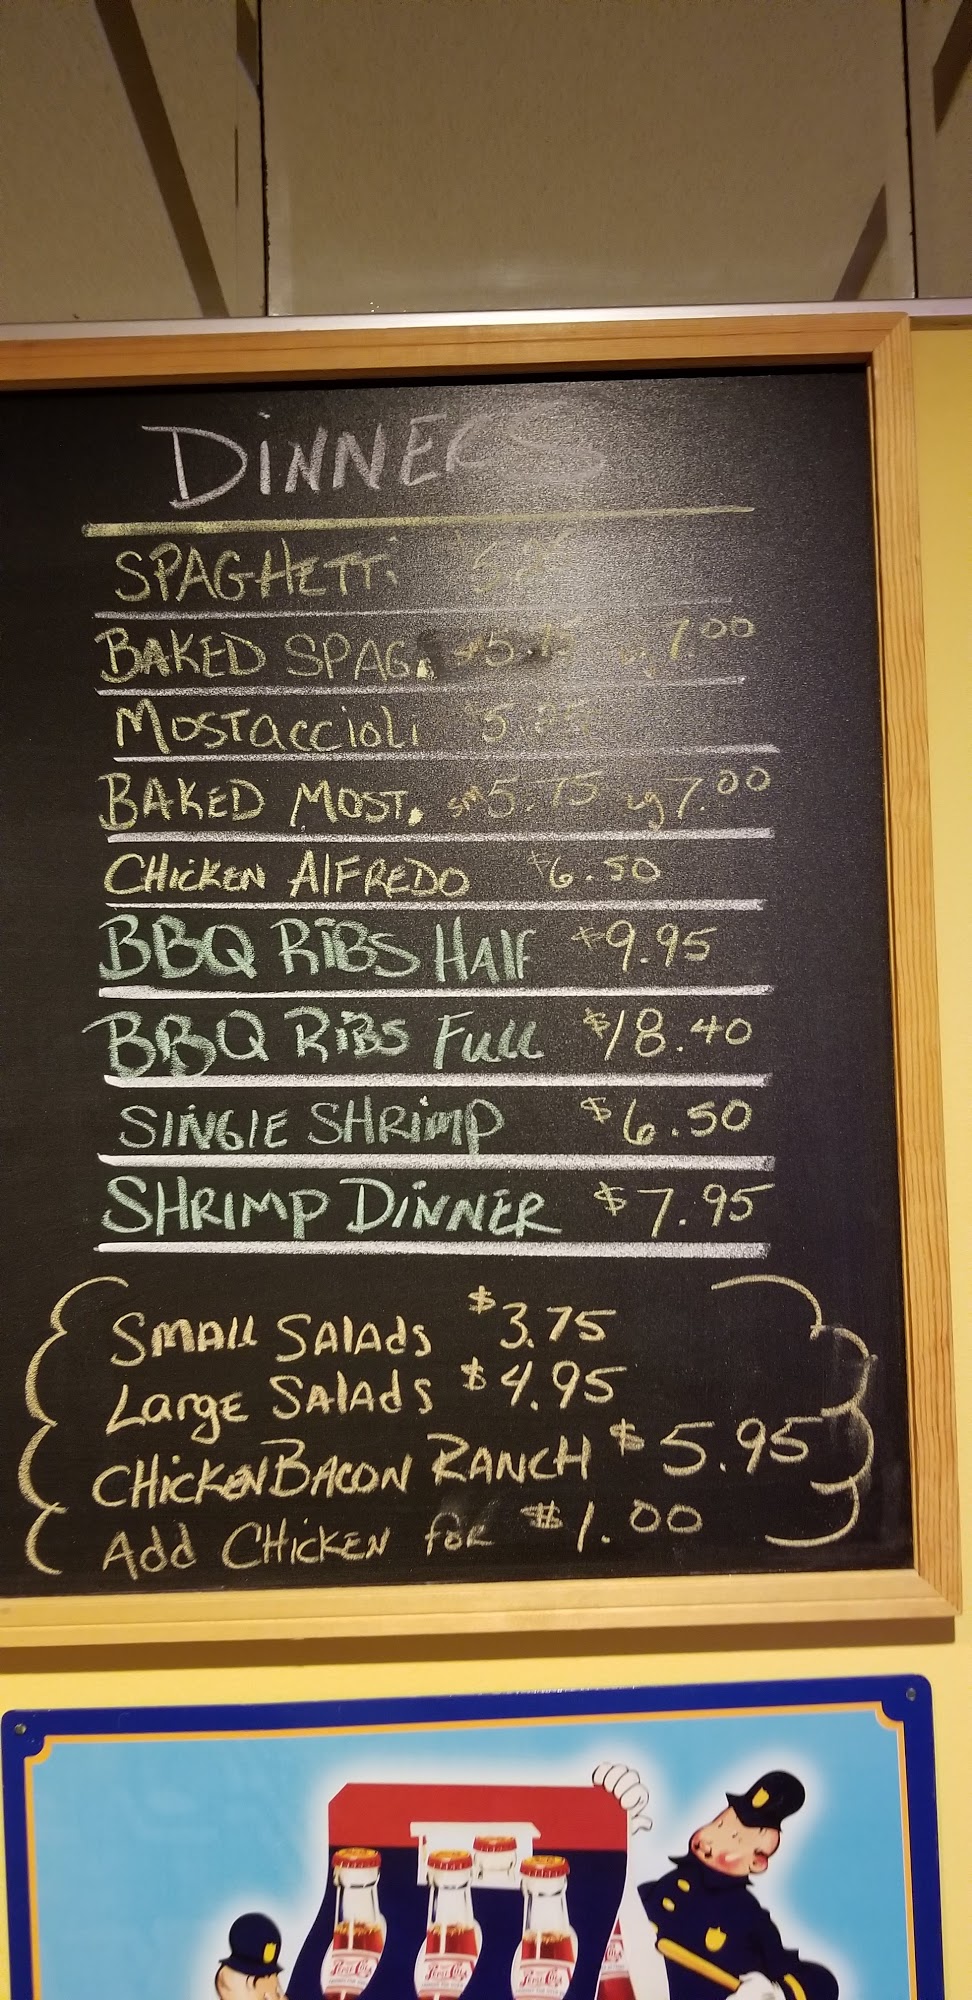 DiNNERS
SPAGHETTi
BAKED SPAG. 7.00
MOSTACCIOLI $5.
BAKED MOST. sm 5.75 lg 7.00
CHICKEN ALFREDO $6.50
BBQ RiBS HALF $9.95
BBQ RiBS Full $18.40
SINGLE SHRimp $6.50
SHRIMP DiNNER $7.95
SMALL SALAdS $3.75
LargE SALAdS $4.95
CHicKEN BACON RANCH $5.95
Add CHicKEN foR $1.00
Pepsi-Cola Pepsi-Cola Pepsi-Cola